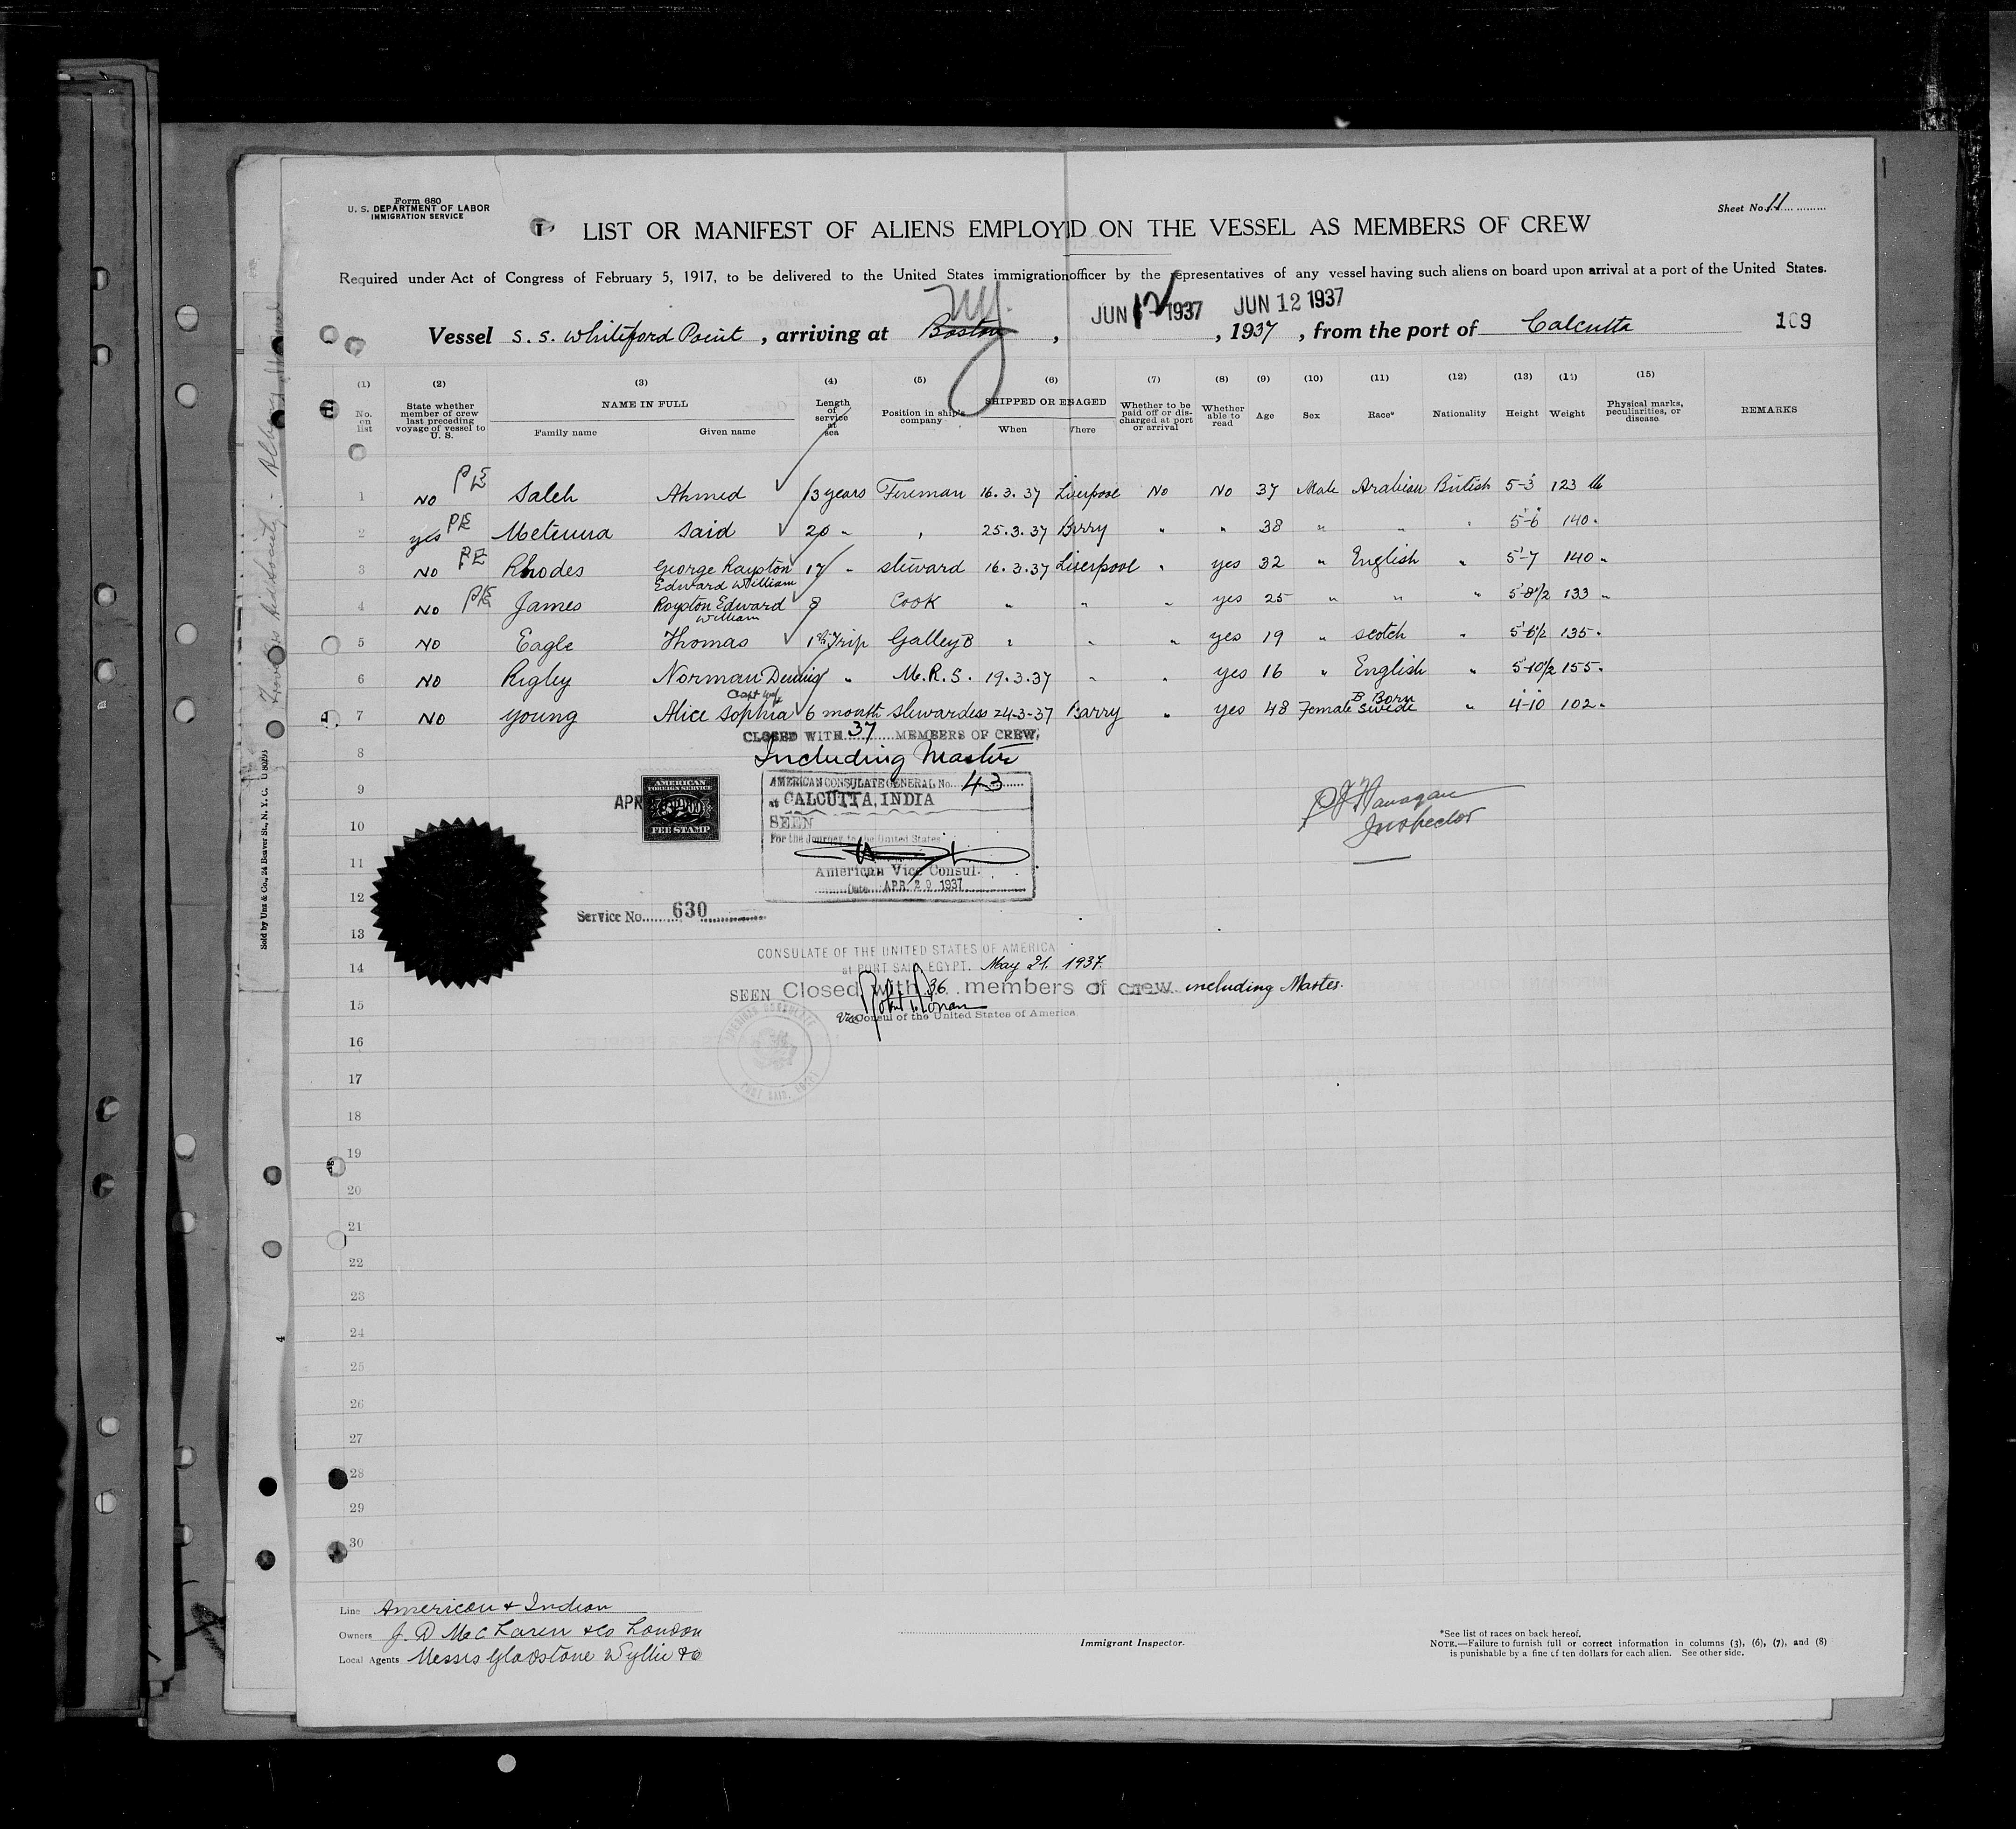 Form 680
U. S. DEPARTMENT OF LABOR
IMMIGRATION SERVICE
Sheet No. 11
LIST OR MANIFEST OF ALIENS EMPLOYD ON THE VESSEL AS MEMBERS OF CREW
Required under Act of Congress of February 5, 1917, to be delivered to the United States immigration officer by the representatives of any vessel having such aliens on board upon arrival at a port of the United States.
N.Y.
JUN 12 1937 JUN 12 1937
Vessel S. S. Whiteford Point, arriving at Boston, , 1937, from the port of Calcutta 109
(1) (2) (3) (4) (5) (6) (7) (8) (9) (10) (11) (12) (13) (14) (15)
No. on list
State whether member of crew last preceding voyage of vessel to U. S.
NAME IN FULL
Family name Given name
Length of service at sea
Position in ship's company
SHIPPED OR ENGAGED
When Where
Whether to be paid off or discharged at port or arrival
Whether able to read
Age Sex Race* Nationality Height Weight
Physical marks, peculiarities, or disease
REMARKS
1 No PE Saleh Ahmed 13 years Fireman 16.3.37 Liverpool No No 37 Male Arabian British 5-3 123 lb
2 yes PE Metunna Said 20 " " 25.3.37 Barry " " 38 " " " 5-6 140 "
3 No PE Rhodes George Royston Edward William 17 " Steward 16.3.37 Liverpool " yes 32 " English " 5-7 140 "
4 No PE James Royston Edward William 8 Cook " " " yes 25 " " " 5-8½ 133 "
5 No Eagle Thomas 1st Trip Galley B " " " yes 19 " Scotch " 5-6½ 135 "
6 No Rigley Norman Dennis " M.R.S. 19.3.37 " " yes 16 " English " 5-10½ 155 "
7 No Young Alice Sophia Capt wife 6 month Stewardess 24-3-37 Barry " yes 48 Female B. Born Swede " 4-10 102 "
CLOSED WITH 37 MEMBERS OF CREW,
8 Including Master
9 AMERICAN FOREIGN SERVICE $2.00 FEE STAMP
APR
AMERICAN CONSULATE GENERAL No. 43
at CALCUTTA, INDIA
SEEN
For the Journey to the United States
American Vice Consul.
Date APR 29 1937
Inspector
10
11
12
Service No. 630
13
CONSULATE OF THE UNITED STATES OF AMERICA
14
at PORT SAID, EGYPT. May 21. 1937.
SEEN Closed with 36 members of crew including Master.
15
Vice Consul of the United States of America
AMERICAN CONSULATE
PORT SAID, EGYPT
16
17
18
19
20
21
22
23
24
25
26
27
28
29
30
Line American & Indian
Owners J. D McLaren & Co London
Local Agents Messrs Gladstone Wyllie & Co
Immigrant Inspector.
*See list of races on back hereof.
NOTE.—Failure to furnish full or correct information in columns (3), (6), (7), and (8)
is punishable by a fine of ten dollars for each alien. See other side.
Sold by Unz & Co., 24 Beaver St., N. Y. C.
4